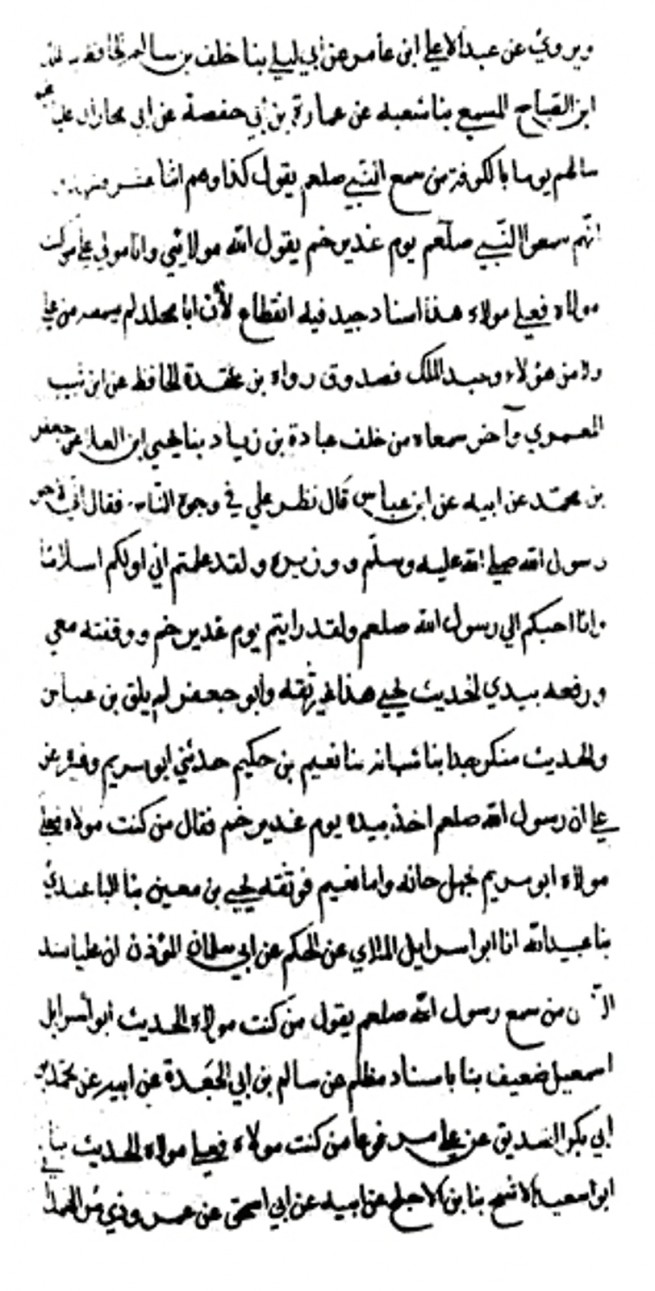 ويروى عن عبد الاعلى ابن عامر عن ابي ليلى بنا خلف بن سالم الحافظ
ابن القباح المسمع بنا شعبه عن عمارة بن ابي حفصة عن ابى
سالهم يوما بالكوفة من سمع النبي صلعم يقول كذا وهم اثنا عشر
انهم سمعوا النبي صلعم يوم غدير خم يقول الله مولائي وانا مولى على من كنت
مولاه فعلي مولاه هذا اسناد جيد فيه انقطاع لأن ابا مجلد لم يسمعه من علي
ولا من هؤلاء وعبد الملك فصدوق رواه بن عقدة الحافظ عن ابن شبيب
المعمري وآخر سمعاه من خلف عبادة بن زياد بنا يحيى ابن العلا عن جعفر
بن محمد عن ابيه عن ابن عباس قال نظر علي في وجوه الناس فقال اني لاخو
رسول الله صلى الله عليه وسلم ووزيره ولقد علمتم اني اولكم اسلاما
وانا احبكم الي رسول الله صلعم ولقد رايتم يوم غدير خم ووقفته معي
ورفعه بيدي الحديث يحيى هذا غير ثقه وابو جعفر لم يلق بن عباس
والحديث منكر جدا بنا شبابه بنا نعيم بن حكيم حدثني ابو مريم وغيره عن
علي ان رسول الله صلعم اخذ بيده يوم غدير خم فقال من كنت مولاه فعلي
مولاه ابو مريم نجهل حاله واما نعيم فوثقه يحيى بن معين بنا الباغندي
بنا عبيد الله انا ابو اسرايل الملاي عن الحكم عن ابي سلمان المؤذن ان عليا نشد
الناس من سمع رسول الله صلعم يقول من كنت مولاه الحديث ابو اسرايل
اسمعيل ضعيف بنا باسناد مظلم عن سالم بن ابي الجعدة عن ابيه عن محمد بن
ابي بكر الصديق عن علي مرفوعا من كنت مولاه فعلي مولاه الحديث بنا
ابو سعيد الاشج بنا بن الاجلح عن ابيه عن ابي اسحق عن عمرو ذي مر